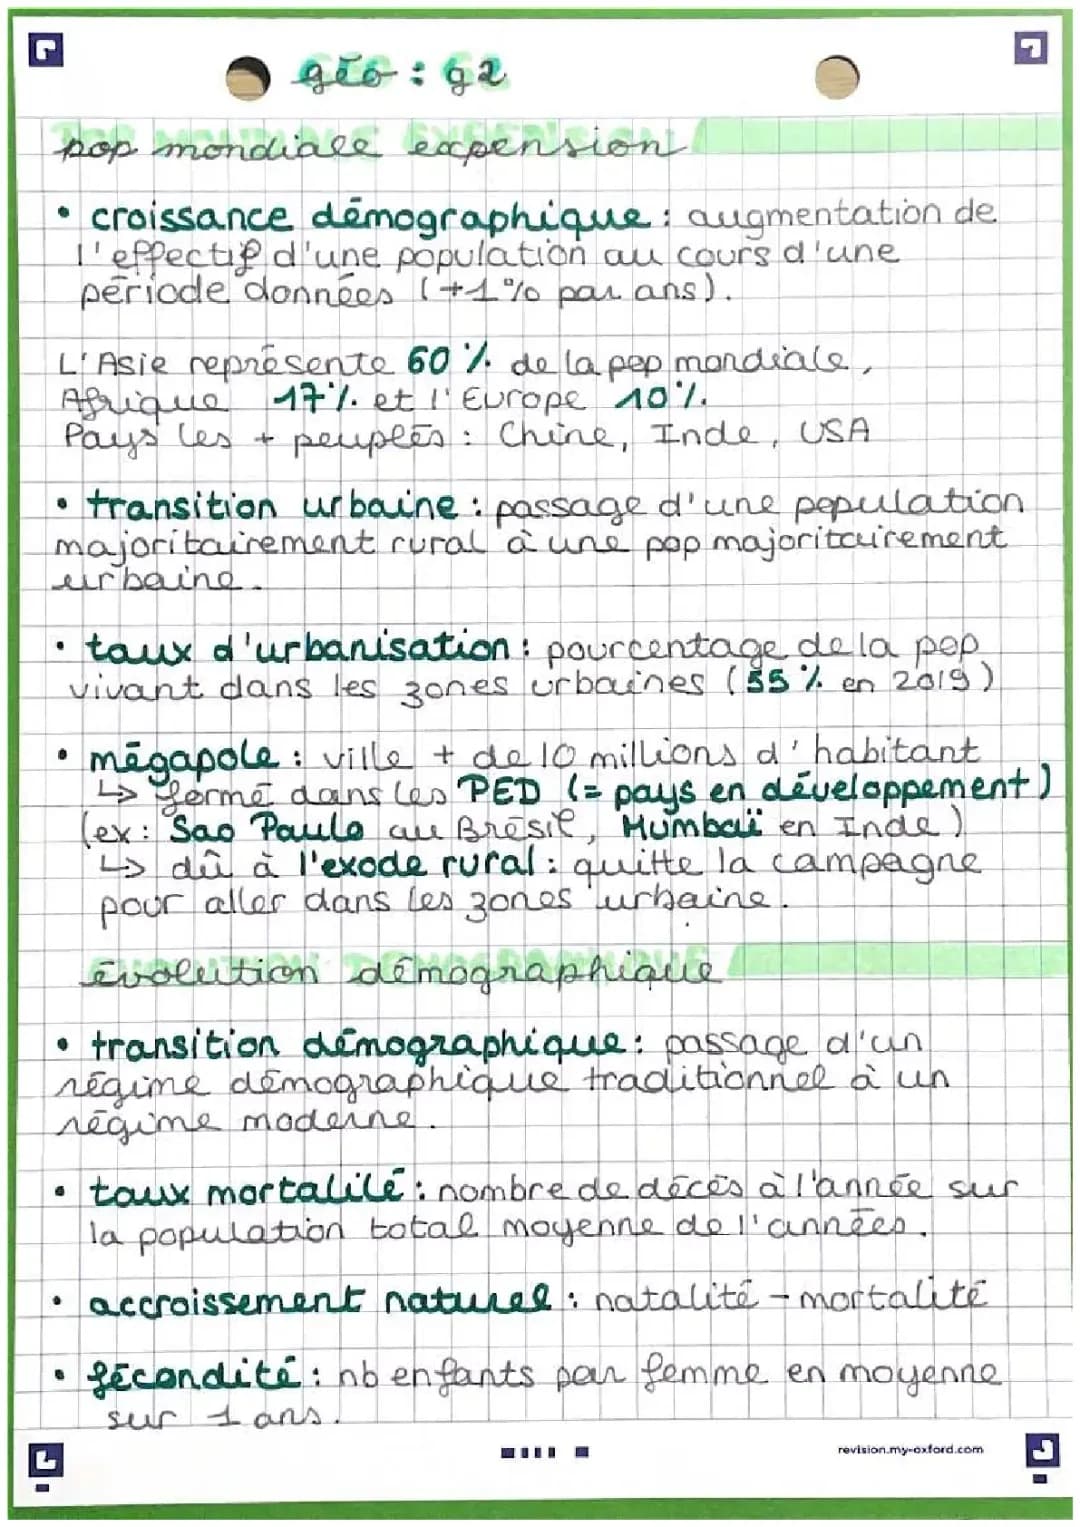 géo : g2
pop mondiale expension
• croissance démographique : augmentation de
l'effectif d'une population au cours d'une
période données (+1% par ans).
L'Asie représente 60 % de la pop mondiale,
Afrique 17% et l'Europe 10%.
Pays les + peuplés : Chine, Inde, USA
• transition urbaine : passage d'une population
majoritairement rural à une pop majoritairement
urbaine.
• taux d'urbanisation : pourcentage de la pop
vivant dans les zones urbaines (55 % en 2019)
• mégapole : ville + de 10 millions d'habitant
↳ formé dans les PED (= pays en développement)
(ex : Sao Paulo au Brésil, Mumbaï en Inde)
↳ dû à l'exode rural : quitte la campagne
pour aller dans les zones urbaine.
évolution démographique
• transition démographique : passage d'un
régime démographique traditionnel à un
régime moderne.
• taux mortalité : nombre de décès à l'année sur
la population total moyenne de l'années.
• accroissement naturel : natalité - mortalité
• fécondité : nb enfants par femme en moyenne
sur 1 ans.
revision.my-oxford.com